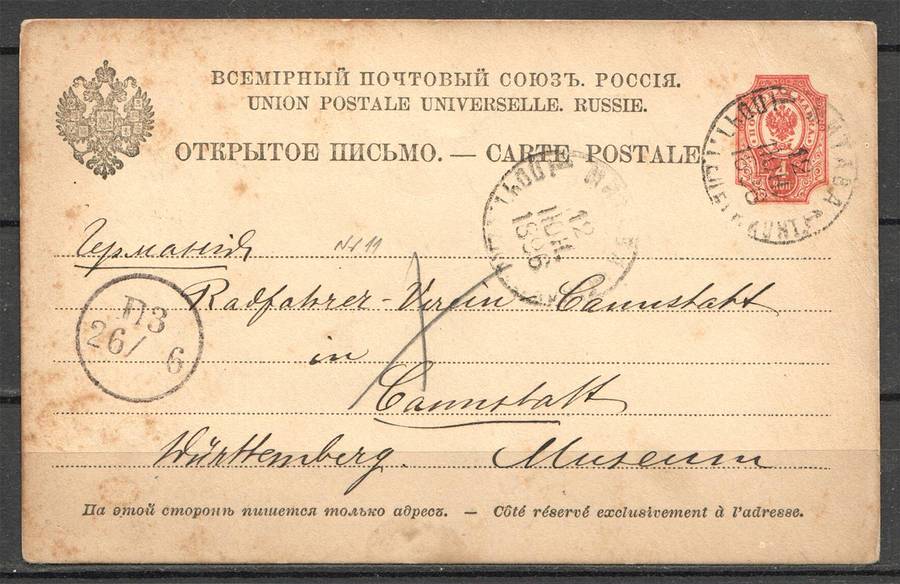 ВСЕМІРНЫЙ ПОЧТОВЫЙ СОЮЗЪ. РОССІЯ.
UNION POSTALE UNIVERSELLE. RUSSIE.
ОТКРЫТОЕ ПИСЬМО. — CARTE POSTALE
12
ІЮН.
1896
12
МИТАВА
4
КОП
Германія
№ 11
Radfahrer-Verein Cannstatt
П3
26/ 6
in
Cannstatt
Württemberg. Museum
На этой сторонѣ пишется только адресъ. — Côté réservé exclusivement à l'adresse.